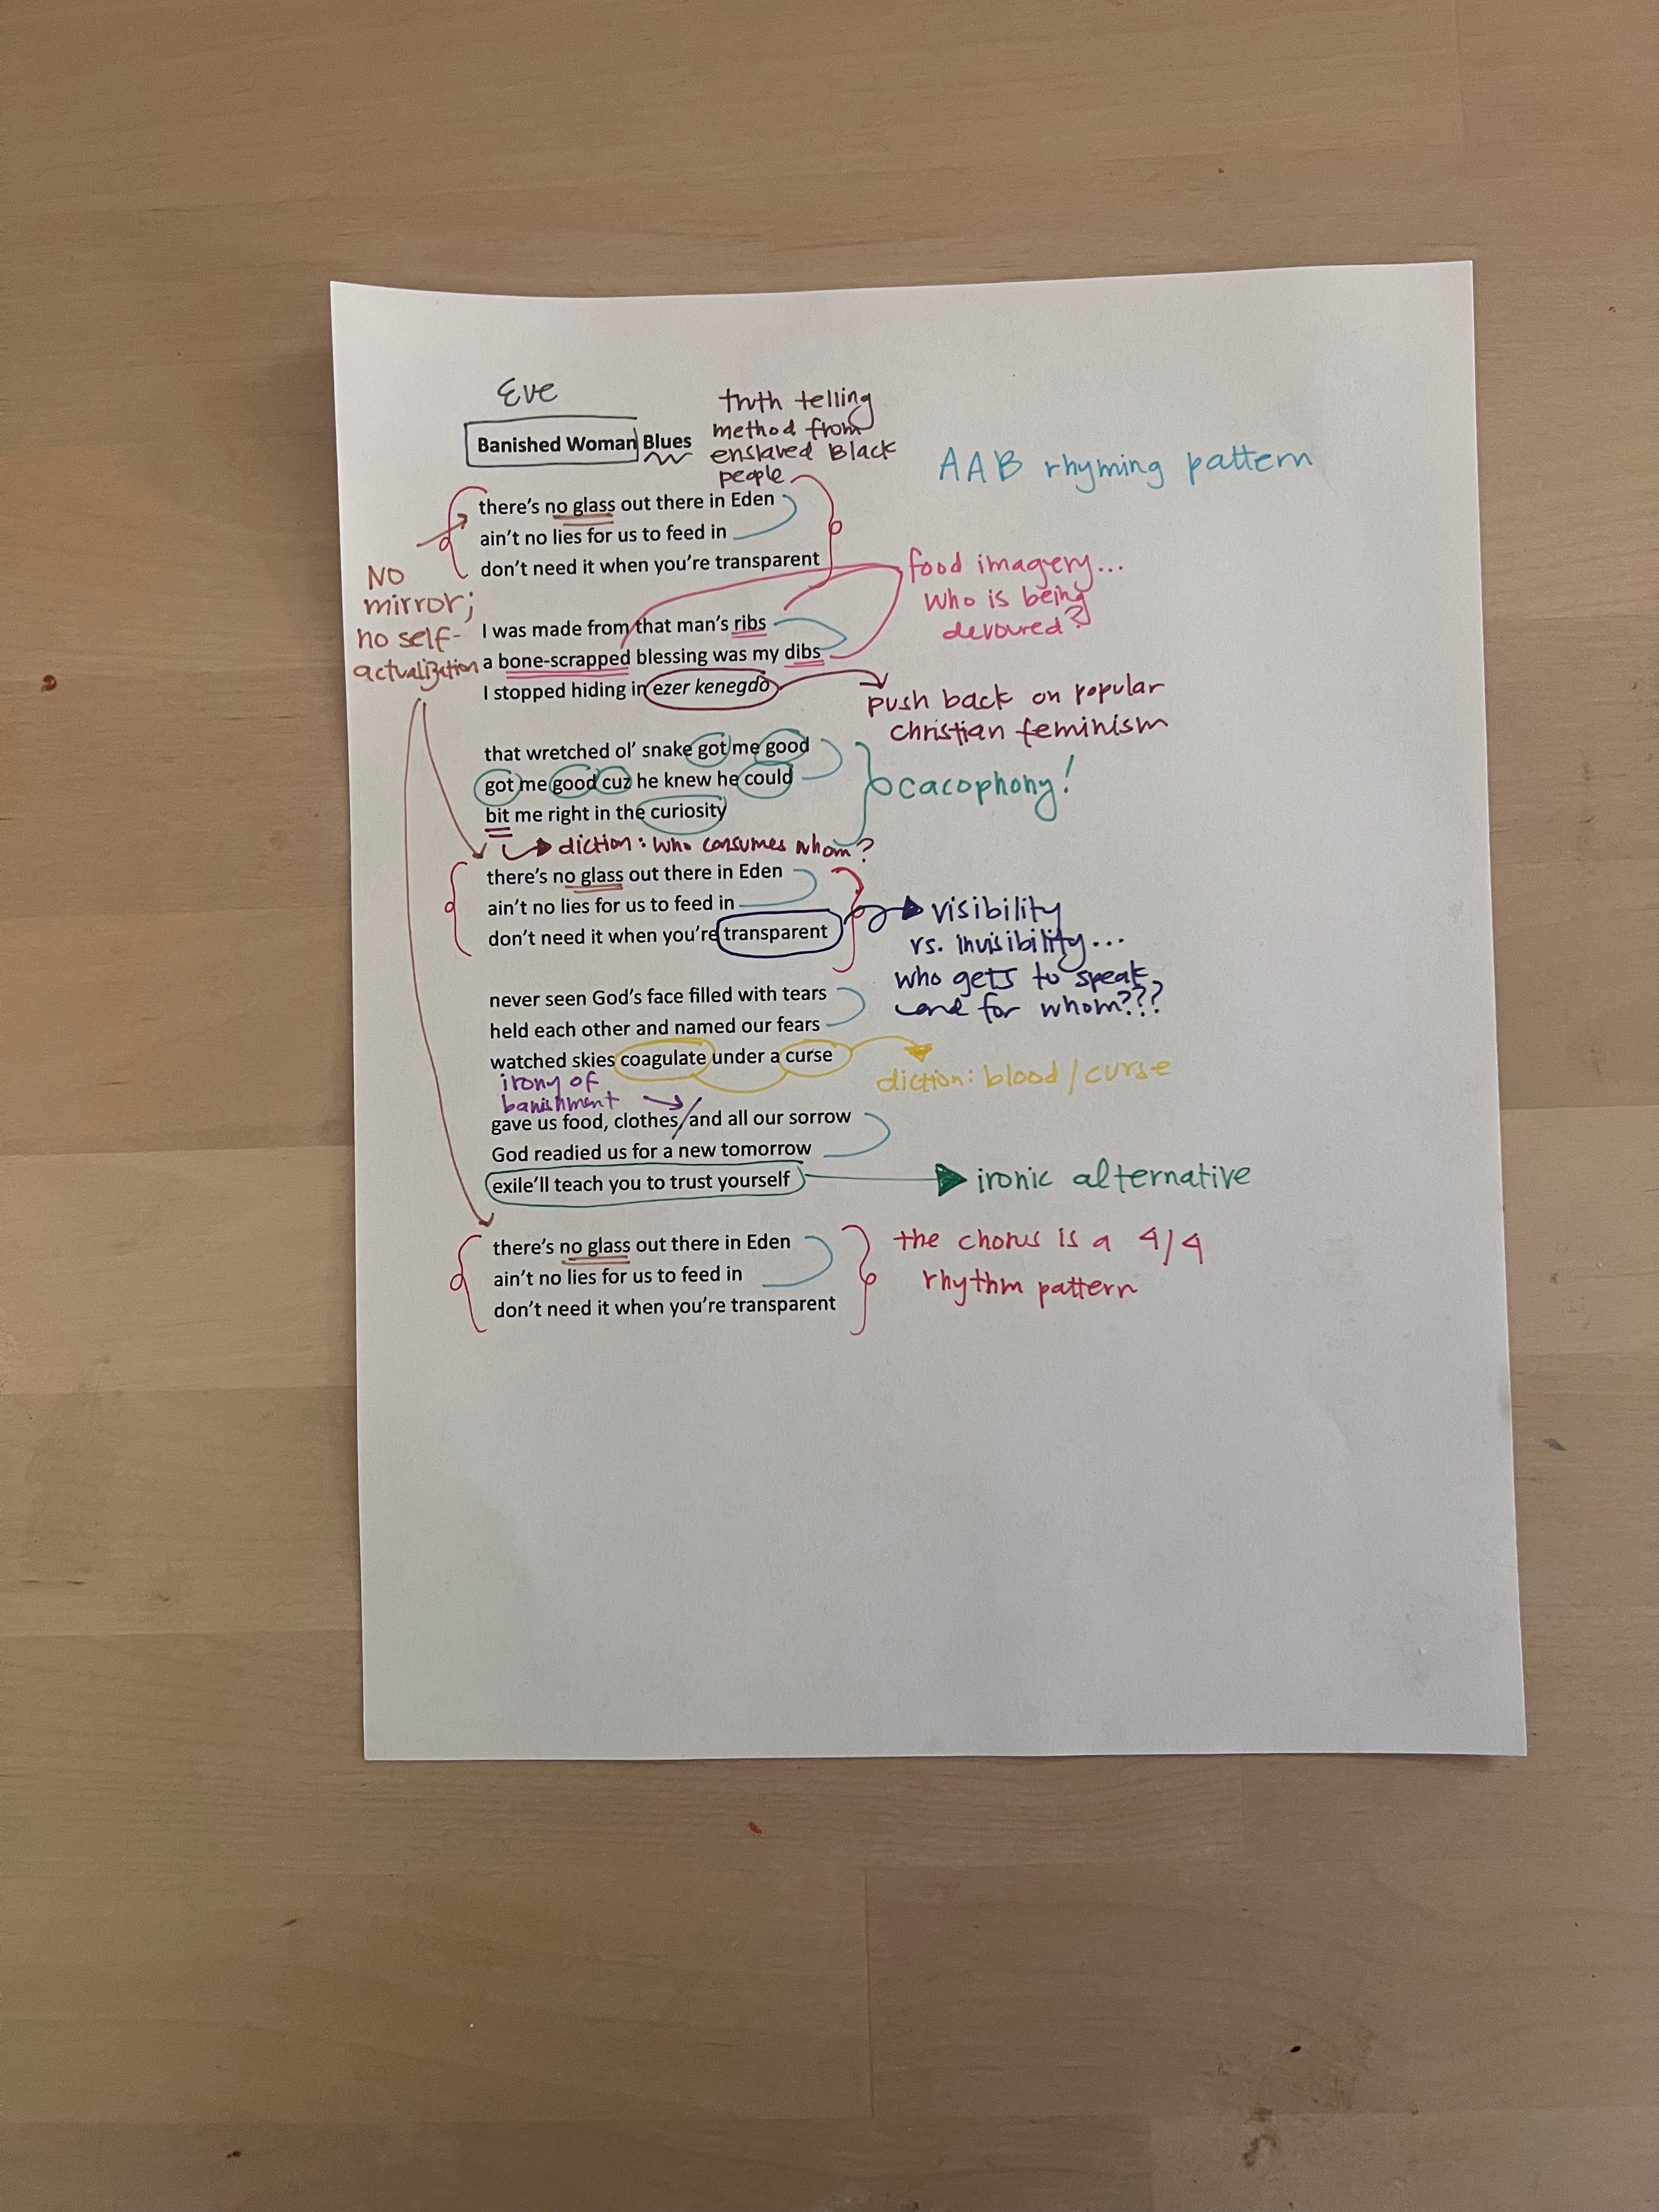 Eve
Banished Woman Blues
truth telling
method from
enslaved Black
people
AAB rhyming pattern
there's no glass out there in Eden
ain't no lies for us to feed in
don't need it when you're transparent
No
mirror;
no self-
actualization
food imagery...
who is being
devoured?
I was made from that man's ribs
a bone-scrapped blessing was my dibs
I stopped hiding in ezer kenegdo
push back on popular
christian feminism
that wretched ol' snake got me good
got me good cuz he knew he could
bit me right in the curiosity
cacophony!
diction: who consumes whom?
there's no glass out there in Eden
ain't no lies for us to feed in
don't need it when you're transparent
visibility
vs. invisibility...
who gets to speak
and for whom???
never seen God's face filled with tears
held each other and named our fears
watched skies coagulate under a curse
diction: blood/curse
irony of
banishment
gave us food, clothes, and all our sorrow
God readied us for a new tomorrow
exile'll teach you to trust yourself
ironic alternative
there's no glass out there in Eden
ain't no lies for us to feed in
don't need it when you're transparent
the chorus is a 4/4
rhythm pattern